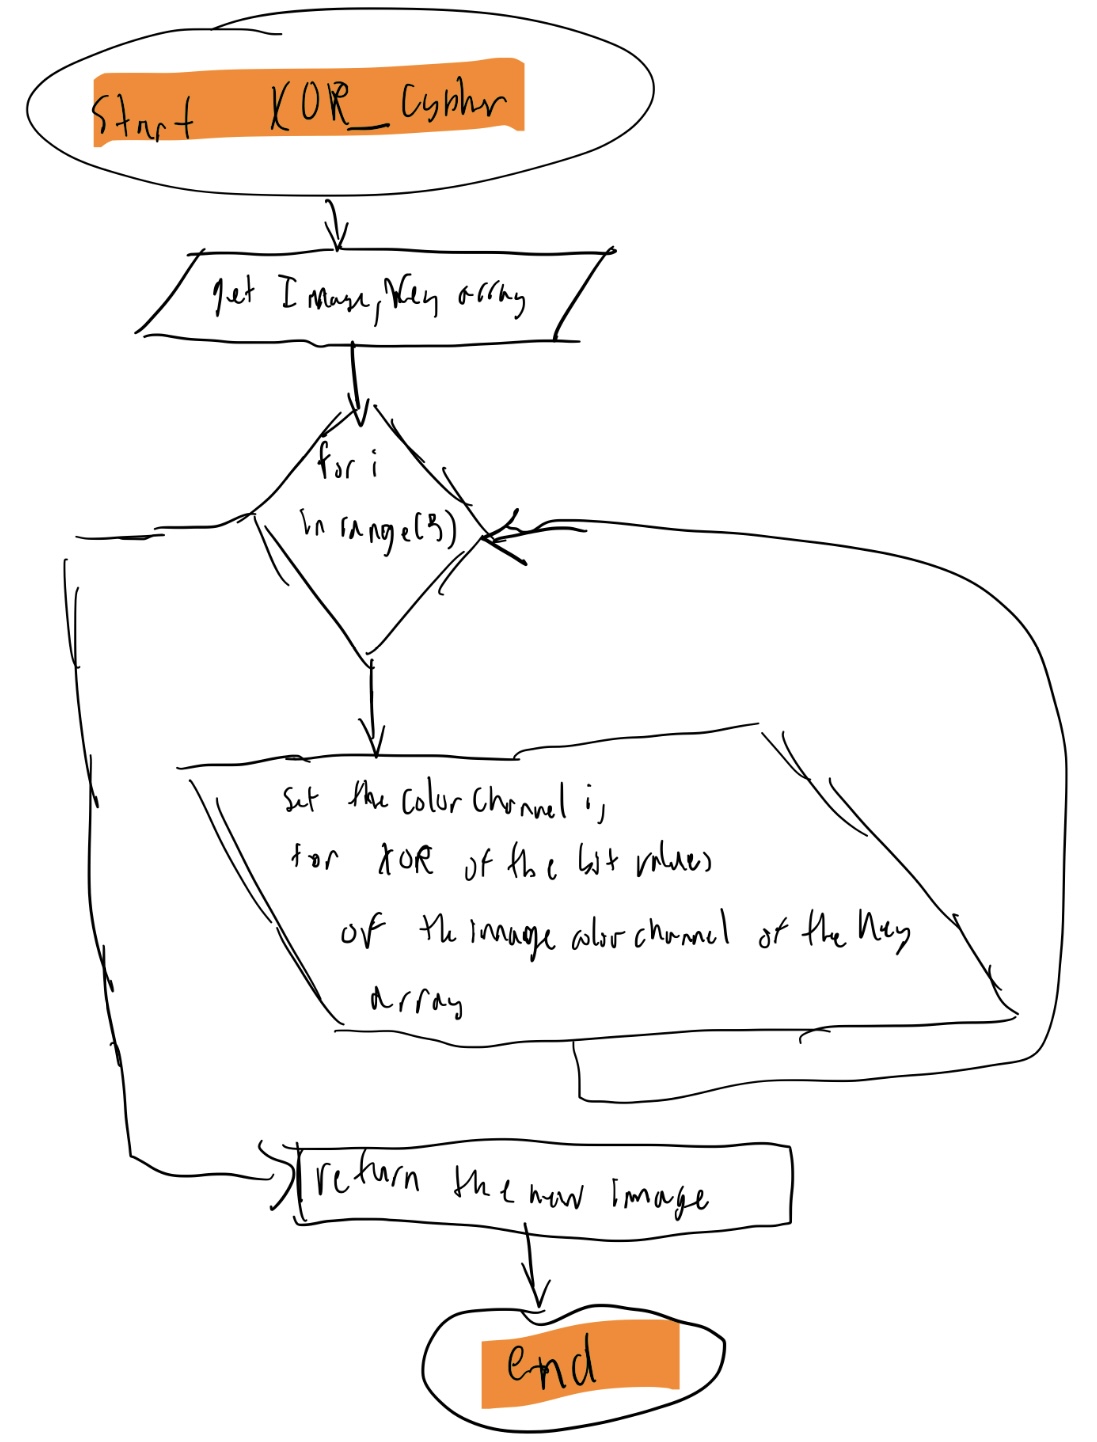 Start XOR_Cypher
get Image, Key array
for i
in range(3)
Set the color channel i,
for XOR of the bit values
of the image color channel of the Key
array
return the new image
end